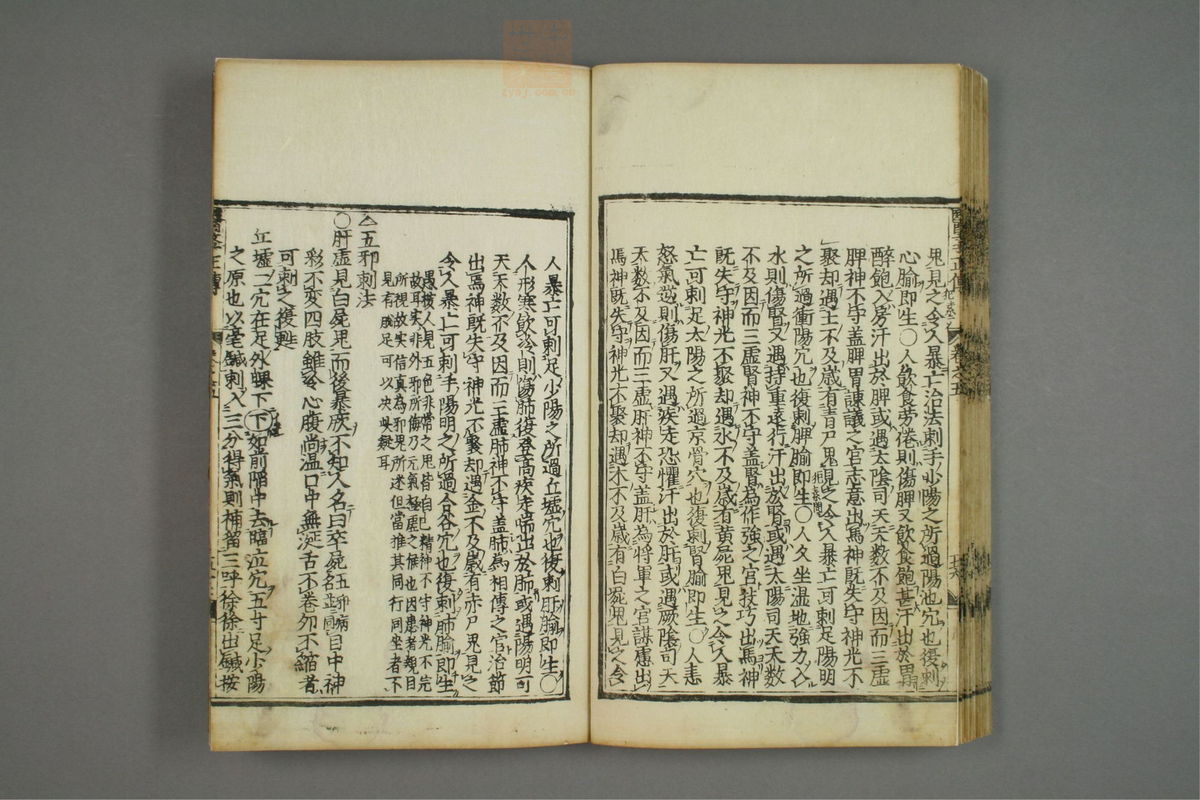 鬼見之令人暴亡治法刺手少陽之所過陽池穴也復刺
心腧即生〇人飲食勞倦則傷脾又飲食飽甚汗出於胃
醉飽入房汗出於脾或遇太陰司天天數不及因而三虛
脾神不守盖脾胃諫議之官志意出焉神既失守神光不
聚却遇土不及歲有青尸鬼見之令人暴亡可刺足陽明
之所過衝陽穴也復刺脾腧即生〇人久坐湿地強力入
水則傷腎又遇持重遠行汗出於腎或遇太陽司天天數
不及因而三虛腎神不守盖腎為作強之官技巧出焉神
既失守神光不聚却遇水不及歲有黄屍鬼見之令人暴
亡可刺足太陽之所過京骨穴也復刺腎腧即生〇人恚
怒氣逆則傷肝又遇疾走恐懼汗出於肝或遇厥陰司天
天數不及因而三虛肝神不守盖肝為將軍之官謀慮出
焉神既失守神光不聚却遇木不及歲有白屍鬼見之令
人暴亡可刺足少陽之所過丘墟穴也復刺肝腧即生〇
人形寒飲冷則傷肺復登高疾走喘出於肺或遇陽明司
天天數不及因而三虛肺神不守盖肺為相傳之官治節
出焉神既失守神光不聚却遇金不及歲有赤尸鬼見之
令人暴亡可刺手陽明之所過合谷穴也復刺肺腧即生
愚按人見五色非常之鬼皆自己精神不守神光不完
故耳実非外邪所傷乃元氣極虛之候也因患者親目
所視故実信真為邪鬼所迷但當推其同行同坐者不
見有
△五邪刺法
〇肝虛見白屍鬼而後暴厥不知人名曰卒屍目中神
彩不变四肢雖冷心腹尚温口中無涎舌不卷卵不縮者
可刺之復甦
丘墟二穴在足外踝下如前陷中去臨泣穴五寸足少陽
之原也以毫鍼刺入三分得氣則補留三呼徐徐出鍼按